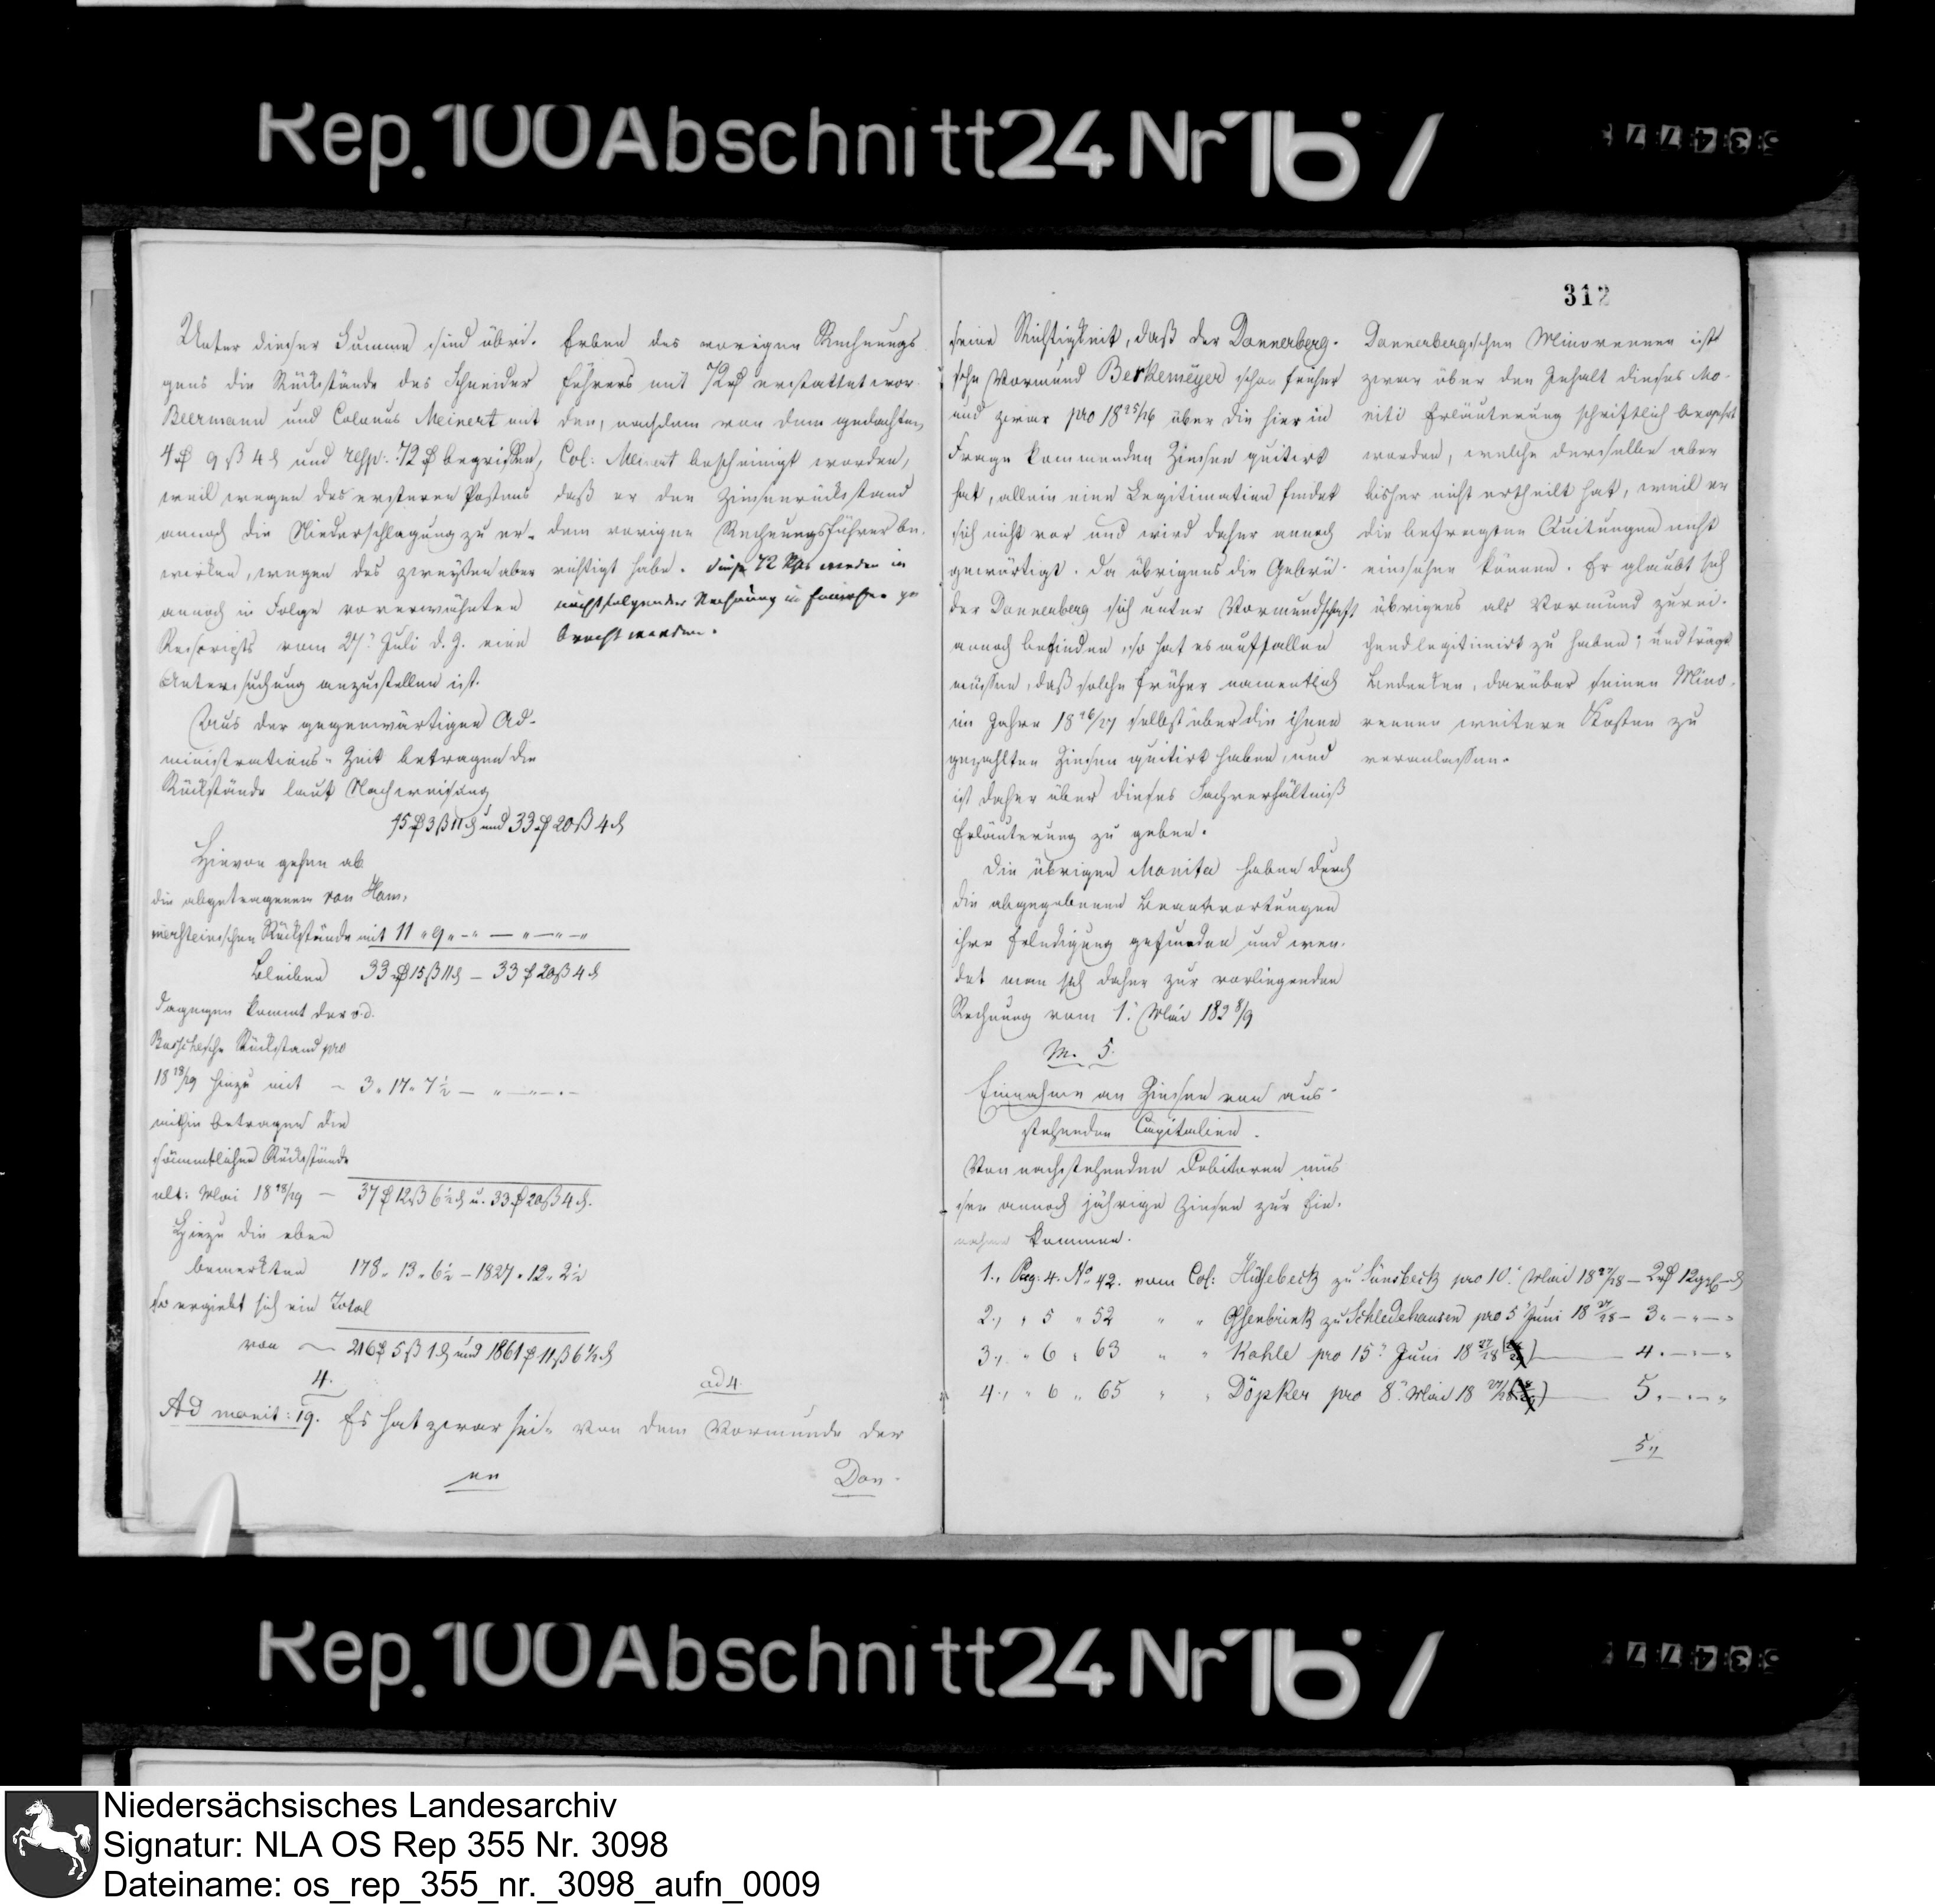 Rep. 100 Abschnitt 24 Nr 167
53477
Unter dieser Summe sind übri-
gens die Rückstände des Schneider
Beermann und Colonus Meinert mit
4 rf 9 ß 4 d und resp: 72 rf begriffen,
weil wegen des ersteren Postens
annoch die Niederschlagung zu er-
wirken, wegen des zweyten aber
annoch in Folge vorerwähnten
Rescripts vom 27. Juli d. J. eine
Untersuchung anzustellen ist.
Aus der gegenwärtigen Ad-
ministrations-Zeit betragen die
Rückstände laut Nachweisung
45 rf 3 ß 11 d und 33 rf 20 ß 4 d
Hievon gehen ab
die abgetragenen von Ham-
mersteinschen Rückstände mit 11 " 9 " - " — " — " — "
Bleiben 33 rf 15 ß 11 d — 33 rf 20 ß 4 d
dagegen kommt der v. d.
Busschesche Rückstand pro
18 28/29 hinzu mit — 3 " 17 " 7 ½ — " — " — " —
mithin betragen die
sämmtlichen Rückstände
ult: Mai 18 28/29 — 37 rf 12 ß 6 ½ d u. 33 rf 20 ß 4 d.
Hiezu die eben
bemerkten 178 " 13 " 6 ½ — 1827 " 12 " 2 ½
So ergiebt sich ein Total
von — 216 rf 5 ß 1 d und 1861 rf 11 ß 6 ½ d
4.
Ad monit: 19. Es hat zwar sei-
en
Erben des vorigen Rechnungs
führers mit 72 rf erstattet wor-
den, nachdem von dem gedachten,
Col: Meinert bescheinigt worden,
daß er den Zinsenrückstand
dem vorigen Rechnungsführer be-
richtigt habe. Diese 72 Rthl werden in
nächstfolgender Rechnung in Einnahme ge
bracht werden.
ad 4.
Von dem Vormunde der
Don-
312
seine Richtigkeit, daß der Donnerberg-
sche Vormund Berkemeyer schon früher
und zwar pro 18 25/26 über die hier in
Frage kommenden Zinsen quitirt
hat, allein eine Legitimation findet
sich nicht vor und wird daher annoch
gewärtigt. Da übrigens die Gebrü-
der Donnerberg sich unter Vormundschaft
annoch befinden, so hat es auffallen
müssen, daß solche früher namentlich
im Jahre 18 26/27 selbst über die ihnen
gezahlten Zinsen quitirt haben, und
ist daher über dieses Sachverhältniß
Erläuterung zu geben.
Die übrigen Monita haben durch
die abgegebenen Beantwortungen
ihre Erledigung gefunden und wen-
det man sich daher zur vorliegenden
Rechnung vom 1. Mai 182 8/9
M. 5.
Einnahme an Zinsen von aus-
stehenden Capitalien.
Von nachstehenden Debitoren müs
sen annoch jährige Zinsen zur Ein-
nahme kommen.
1., Pag: 4. No 42. vom Col: Hüsebeck zu Lünsbeck pro 10. Mai 18 27/28 — 2 rf 12 ggl — d
2., " 5 " 52 " " Essenbrink zu Schledehausen pro 5 Juni 18 27/28 — 3 " — " — "
3., " 6 " 63 " " Kahle pro 15. Juni 18 27/28 — 4 " — " — "
4., " 6 " 65 " " Döpker pro 8. Mai 18 27/28 — 5 " — " — "
5.,
Donnerbergschen Minorennen ist
zwar über den Inhalt dieses Mo-
niti Erläuterung schriftlich begehrt
worden, welche derselbe aber
bisher nicht ertheilt hat, weil er
die befragten Quitungen nicht
einsehen können. Er glaubt sich
übrigens als Vormund zurei-
chend legitimirt zu haben; und trägt
Bedenken, darüber seinen Mino-
rennen weitere Kosten zu
veranlassen.
Rep. 100 Abschnitt 24 Nr 167
53477
Niedersächsisches Landesarchiv
Signatur: NLA OS Rep 355 Nr. 3098
Dateiname: os_rep_355_nr._3098_aufn_0009